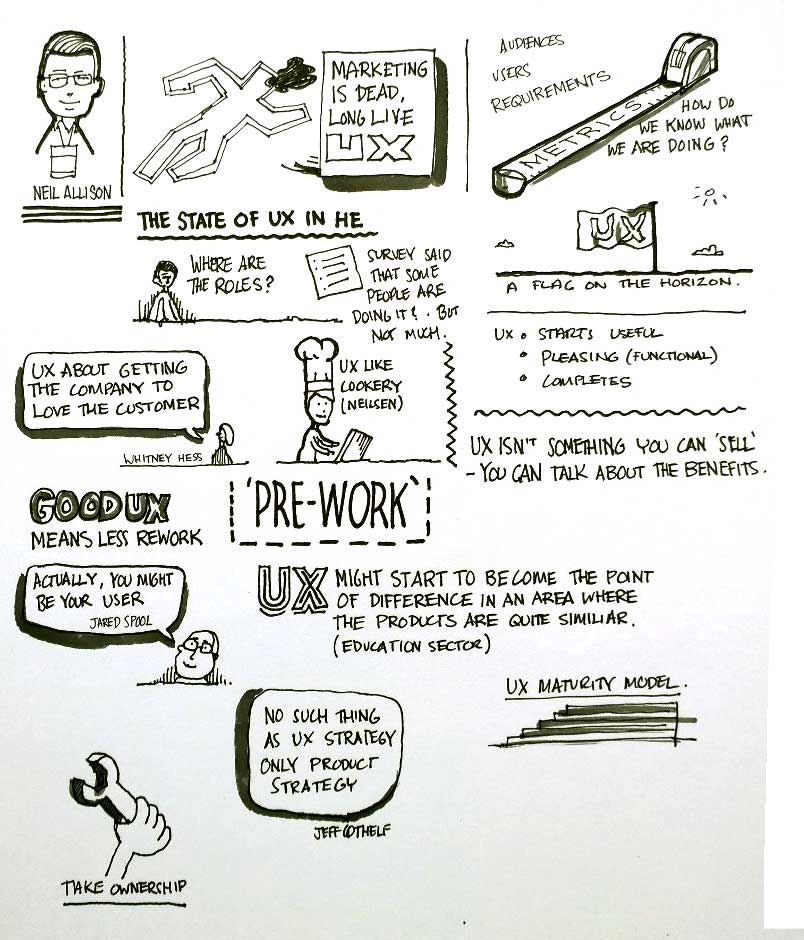 NEIL ALLISON
MARKETING
IS DEAD,
LONG LIVE
UX
AUDIENCES
USERS
REQUIREMENTS
METRICS
HOW DO
WE KNOW WHAT
WE ARE DOING?
THE STATE OF UX IN HE
WHERE ARE
THE ROLES?
SURVEY SAID
THAT SOME
PEOPLE ARE
DOING IT &. BUT
NOT MUCH.
UX
A FLAG ON THE HORIZON.
UX • STARTS USEFUL
• PLEASING (FUNCTIONAL)
• COMPLETES
UX ABOUT GETTING
THE COMPANY TO
LOVE THE CUSTOMER
WHITNEY HESS
UX LIKE
COOKERY
(NEILSEN)
UX ISN'T SOMETHING YOU CAN 'SELL'
- YOU CAN TALK ABOUT THE BENEFITS.
GOOD UX
MEANS LESS REWORK
'PRE-WORK'
ACTUALLY, YOU MIGHT
BE YOUR USER
JARED SPOOL
UX MIGHT START TO BECOME THE POINT
OF DIFFERENCE IN AN AREA WHERE
THE PRODUCTS ARE QUITE SIMILIAR.
(EDUCATION SECTOR)
UX MATURITY MODEL.
NO SUCH THING
AS UX STRATEGY
ONLY PRODUCT
STRATEGY
JEFF GOTHELF
TAKE OWNERSHIP